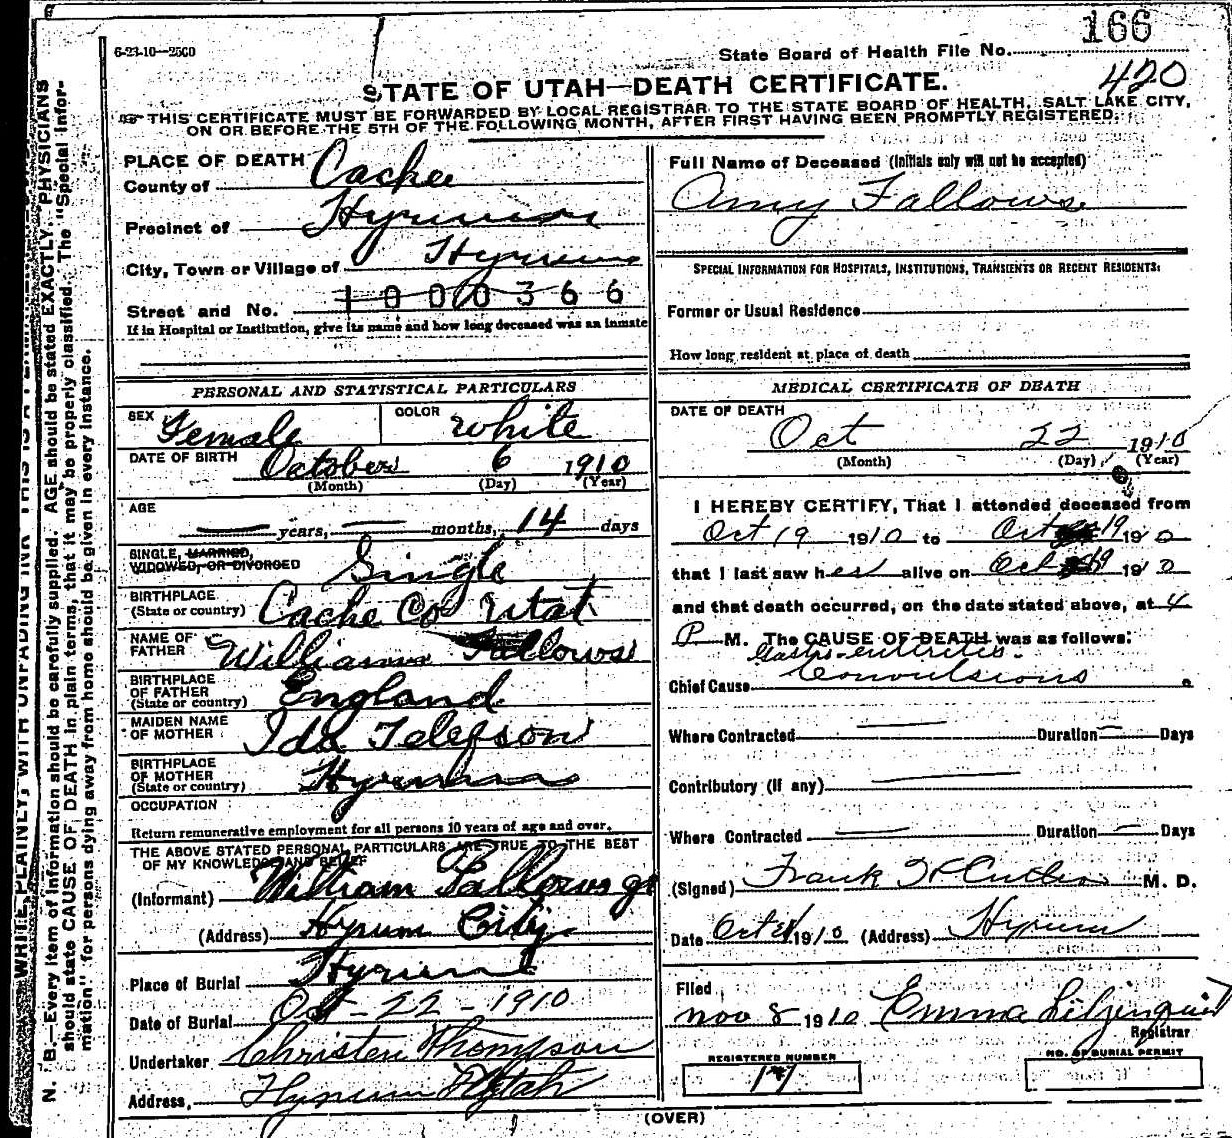 166
6-23-10—2500
State Board of Health File No.
420
STATE OF UTAH—DEATH CERTIFICATE.
THIS CERTIFICATE MUST BE FORWARDED BY LOCAL REGISTRAR TO THE STATE BOARD OF HEALTH, SALT LAKE CITY,
ON OR BEFORE THE 5TH OF THE FOLLOWING MONTH, AFTER FIRST HAVING BEEN PROMPTLY REGISTERED.
PLACE OF DEATH
County of Cache
Precinct of Hyrum
City, Town or Village of Hyrum
Street and No. 1000366
If in Hospital or Institution, give its name and how long deceased was an inmate
Full Name of Deceased (Initials only will not be accepted)
Amy Fallows
SPECIAL INFORMATION FOR HOSPITALS, INSTITUTIONS, TRANSIENTS OR RECENT RESIDENTS:
Former or Usual Residence
How long resident at place of death
PERSONAL AND STATISTICAL PARTICULARS
SEX Female COLOR White
DATE OF BIRTH October 6 1910
(Month) (Day) (Year)
AGE
— years, — months, 14 days
SINGLE, MARRIED,
WIDOWED, OR DIVORCED Single
BIRTHPLACE
(State or country) Cache Co Utah
NAME OF
FATHER William Fallows
BIRTHPLACE
OF FATHER
(State or country) England
MAIDEN NAME
OF MOTHER Ida Telefson
BIRTHPLACE
OF MOTHER
(State or country) Hyrum
OCCUPATION
Return remunerative employment for all persons 10 years of age and over.
THE ABOVE STATED PERSONAL PARTICULARS ARE TRUE TO THE BEST
OF MY KNOWLEDGE AND BELIEF
(Informant) William Fallows
(Address) Hyrum City
Place of Burial Hyrum
Date of Burial Oct - 22 - 1910
Undertaker Christen Thompson
Address, Hyrum Utah
MEDICAL CERTIFICATE OF DEATH
DATE OF DEATH
Oct 22 1910
(Month) (Day) (Year)
I HEREBY CERTIFY, That I attended deceased from
Oct 19 1910 to Oct 19 1910
that I last saw her alive on Oct 19 1910
and that death occurred, on the date stated above, at 4
P M. The CAUSE OF DEATH was as follows:
Gastro-enteritis.
Chief Cause Convulsions
Where Contracted — Duration — Days
Contributory (if any) —
Where Contracted — Duration — Days
(Signed) Frank M. D.
Date Oct 1910 (Address) Hyrum
Filed
Nov 8 1910 Emma
Registrar
REGISTERED NUMBER
NO. OF BURIAL PERMIT
(OVER)
N. B.—Every item of information should be carefully supplied. AGE should be stated EXACTLY. PHYSICIANS
should state CAUSE OF DEATH in plain terms, that it may be properly classified. The "Special Infor-
mation" for persons dying away from home should be given in every instance.
WRITE PLAINLY, WITH UNFADING INK